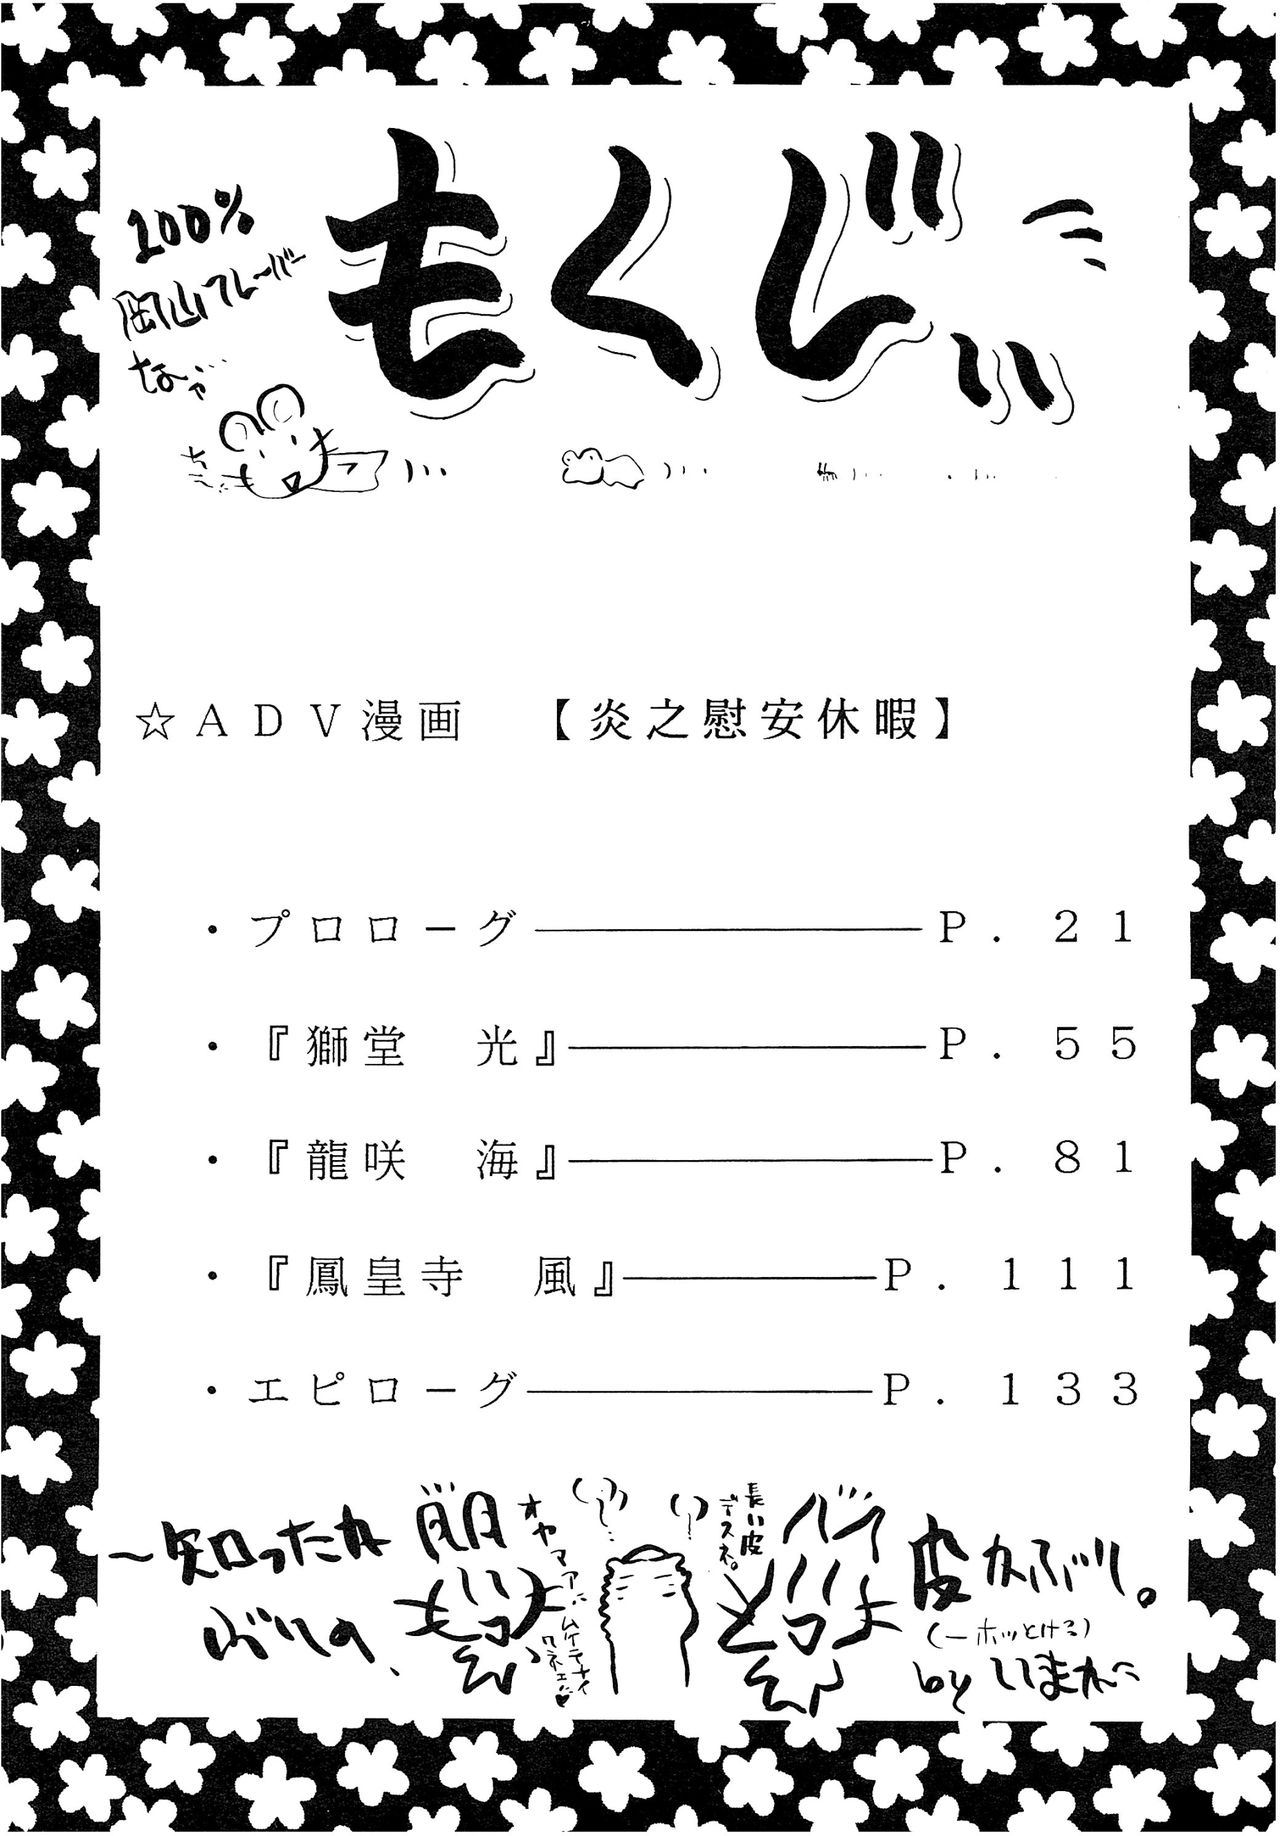 もくじぃ
100%
岡山フレーバー
なッ…
☆ADV漫画　【炎之慰安休暇】
・プロローグ―――P．21
・『獅堂　光』―――P．55
・『龍咲　海』―――P．81
・『鳳皇寺　風』―――P．111
・エピローグ―――P．133
～知ったかぶりの、
オヤマァ
ムケテナイワネェ
長い皮デスネ。
皮かぶり。
by